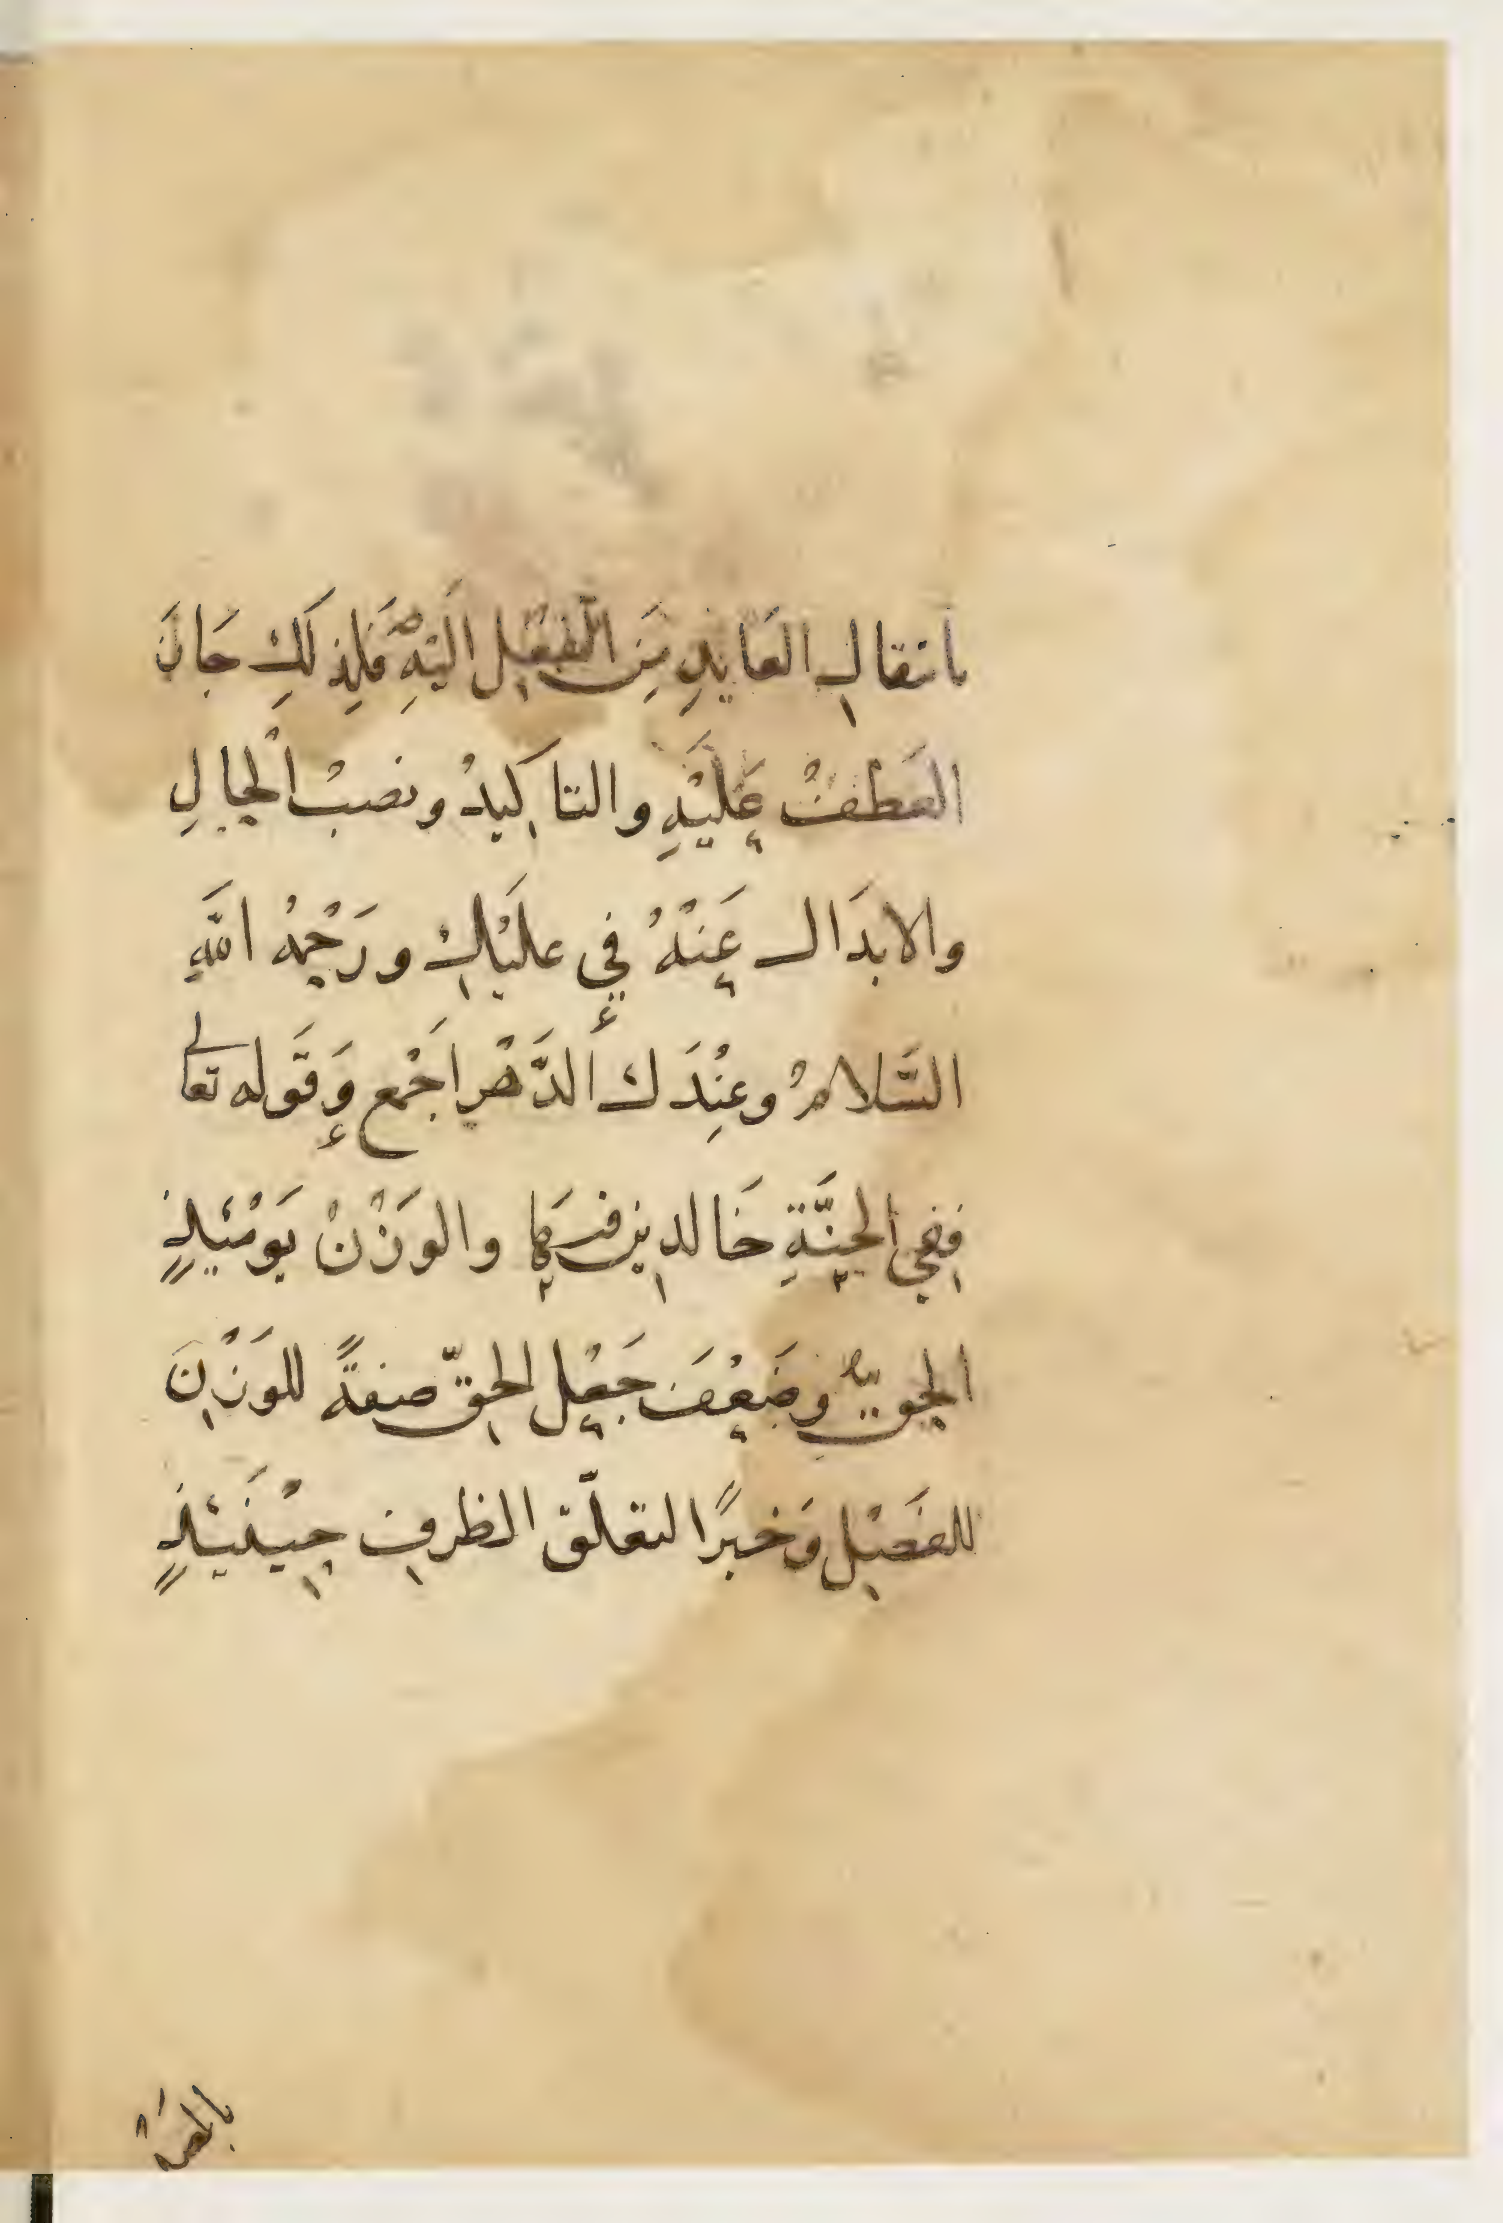 بانتقال العَايدِ مِنَ الفِعْل اليَهِ فَلِذلكِ جَازَ
العَطفُ عَليْهِ والتاكيدُ ونصبُ الْحالِ
والابدَال عَنهُ في عليْكَ ورَحْمةُ اللَّهِ
السَّلامُ وعِنْدَك الدَّهْرَ اَجْمع وَقَوله تعالى
ففي الجنَّةِ خَالدين فيهَا والوَزْنُ يَوْمَئِذٍ
الحقّ وضَعْفَ جَعْل الحقّ صفةً للوَزْنِ
للفَصْل وَخبرًا لتعلّق الظرف حِيْنَئِذٍ
بالمصد